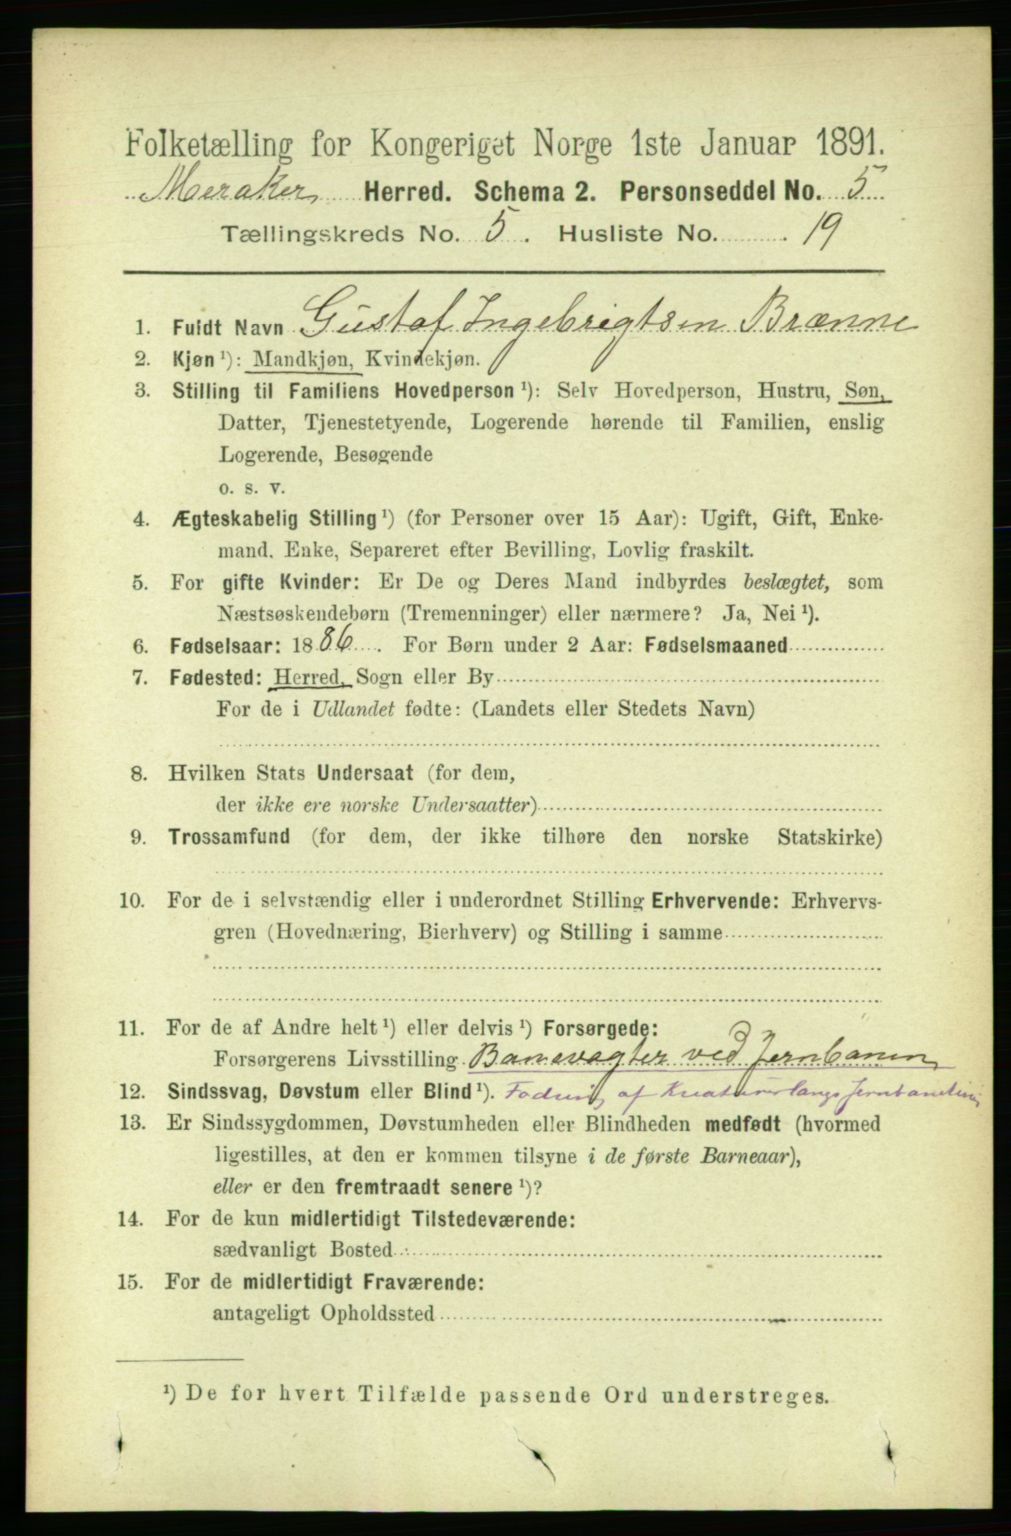 Folketælling for Kongeriget Norge 1ste Januar 1891.
Meraker Herred. Schema 2. Personseddel No. 5
Tællingskreds No. 5. Husliste No. 19
1. Fuldt Navn Gustaf Ingebrigtsen Brænne
2. Kjøn ¹): Mandkjøn, Kvindekjøn.
3. Stilling til Familiens Hovedperson ¹): Selv Hovedperson, Hustru, Søn,
Datter, Tjenestetyende, Logerende hørende til Familien, enslig
Logerende, Besøgende
o. s. v.
4. Ægteskabelig Stilling ¹) (for Personer over 15 Aar): Ugift, Gift, Enke-
mand, Enke, Separeret efter Bevilling, Lovlig fraskilt.
5. For gifte Kvinder: Er De og Deres Mand indbyrdes beslægtet, som
Næstsøskendebørn (Tremenninger) eller nærmere? Ja, Nei ¹).
6. Fødselsaar: 1886. For Børn under 2 Aar: Fødselsmaaned
7. Fødested: Herred, Sogn eller By
For de i Udlandet fødte: (Landets eller Stedets Navn)
8. Hvilken Stats Undersaat (for dem,
der ikke ere norske Undersaatter)
9. Trossamfund (for dem, der ikke tilhøre den norske Statskirke)
10. For de i selvstændig eller i underordnet Stilling Erhvervende: Erhvervs-
gren (Hovednæring, Bierhverv) og Stilling i samme
11. For de af Andre helt ¹) eller delvis ¹) Forsørgede:
Forsørgerens Livsstilling Banevagter ved Jernbanen
12. Sindssvag, Døvstum eller Blind ¹). af Kreaturer langs
13. Er Sindssygdommen, Døvstumheden eller Blindheden medfødt (hvormed
ligestilles, at den er kommen tilsyne i de første Barneaar),
eller er den fremtraadt senere ¹)?
14. For de kun midlertidigt Tilstedeværende:
sædvanligt Bosted
15. For de midlertidigt Fraværende:
antageligt Opholdssted
¹) De for hvert Tilfælde passende Ord understreges.